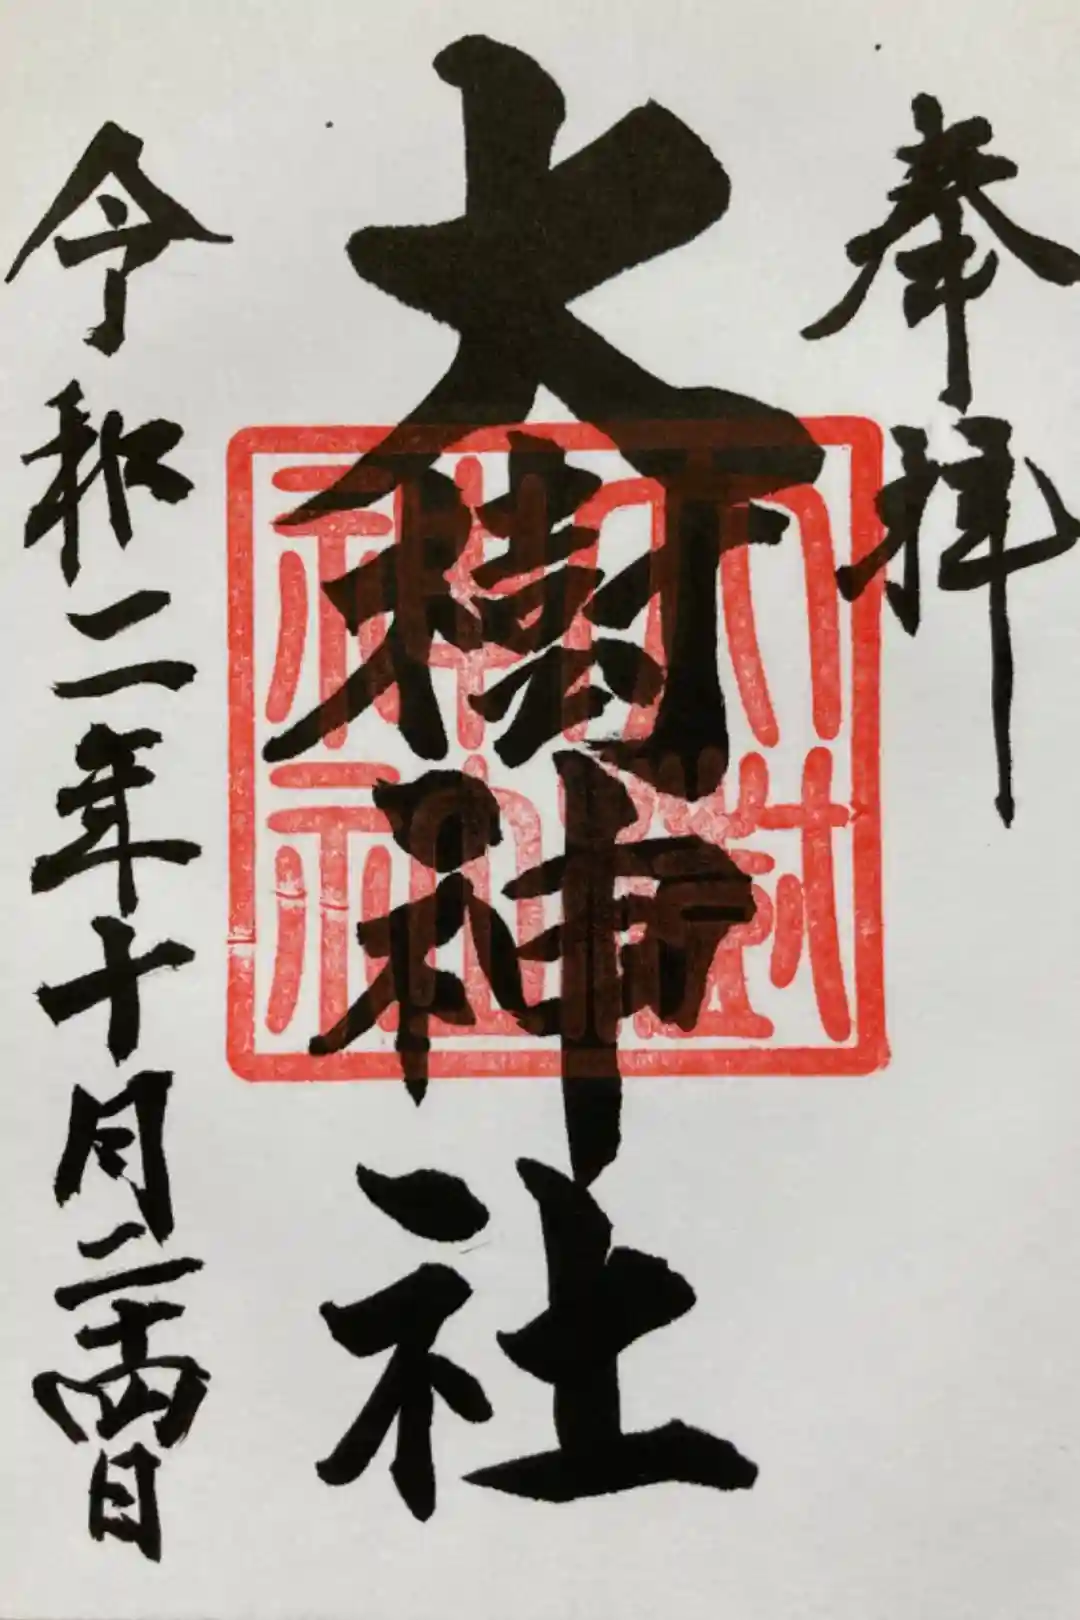 奉拝
大樹神社
大樹神社
令和二年十月二十四日